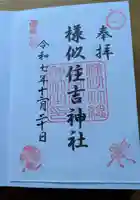 奉拝
様似住吉神社
令和七年十二月二十日